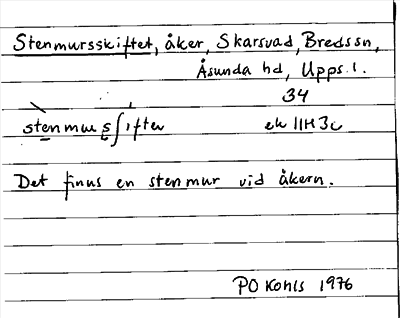 Stenmursskiftet, åker, Skarsvad, Bredssn,
Åsunda hd, Upps. l.
34
stenmursʃifter ek 11H3c
Det finns en stenmur vid åkern.
PO Kohls 1976